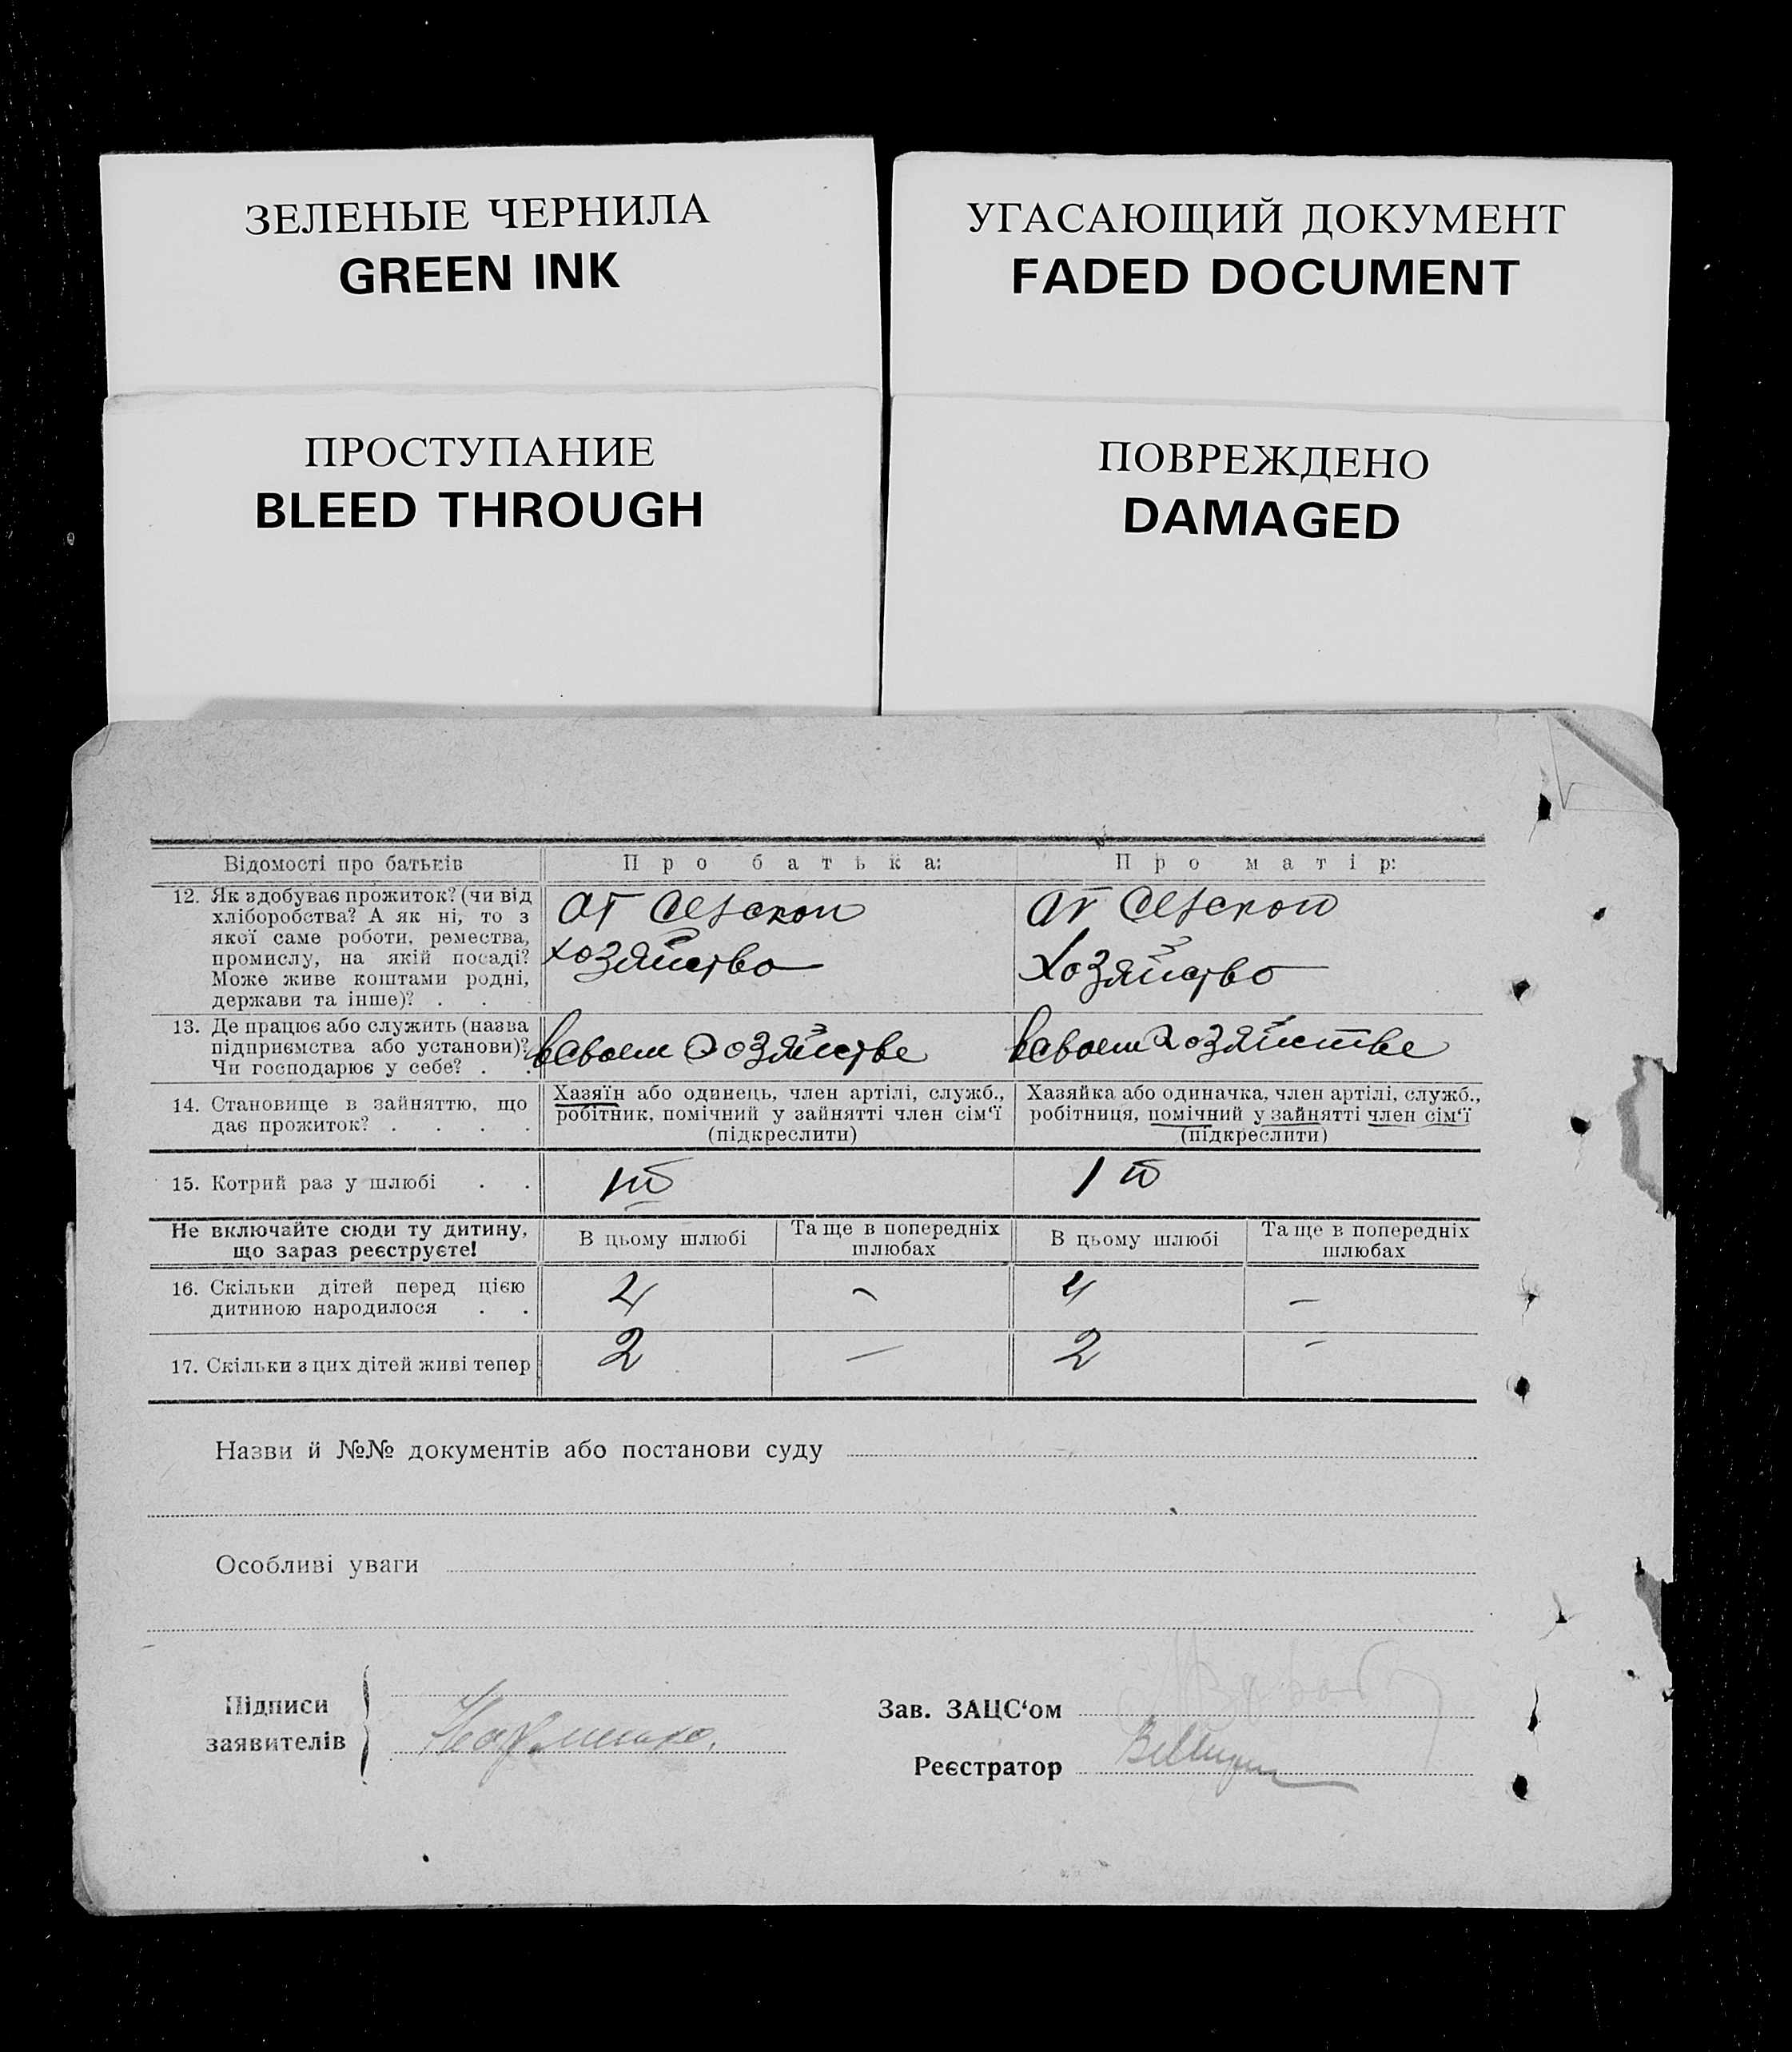 ЗЕЛЕНЫЕ ЧЕРНИЛА
GREEN INK
УГАСАЮЩИЙ ДОКУМЕНТ
FADED DOCUMENT
ПРОСТУПАНИЕ
BLEED THROUGH
ПОВРЕЖДЕНО
DAMAGED
Відомості про батьків
Про батька:
Про матір:
12. Як здобуває прожиток? (чи від
хліборобства? А як ні, то з
якої саме роботи, ремества,
промислу, на якій посаді?
Може живе коштами родні,
держави та інше)? . . .
от сельскои
хозяйство
от сельскои
хозяйство
13. Де працює або служить (назва
підприємства або установи)?
Чи господарює у себе? . .
всвоем хозяйстве
всвоем хозяйстве
14. Становище в зайняттю, що
дає прожиток? . . . .
Хазяїн або одинець, член артілі, служб.,
робітник, помічний у зайнятті член сім‘ї
(підкреслити)
Хазяйка або одиначка, член артілі, служб.,
робітниця, помічний у зайнятті член сім‘ї
(підкреслити)
15. Котрий раз у шлюбі . .
1й
1й
Не включайте сюди ту дитину,
що зараз реєструєте!
В цьому шлюбі
Та ще в попередніх
шлюбах
В цьому шлюбі
Та ще в попередніх
шлюбах
16. Скільки дітей перед цією
дитиною народилося . .
4
–
4
–
17. Скільки з цих дітей живі тепер
2
—
2
–
Назви й №№ документів або постанови суду
Особливі уваги
Підписи
заявителів
Зав. ЗАЦС‘ом
Реєстратор